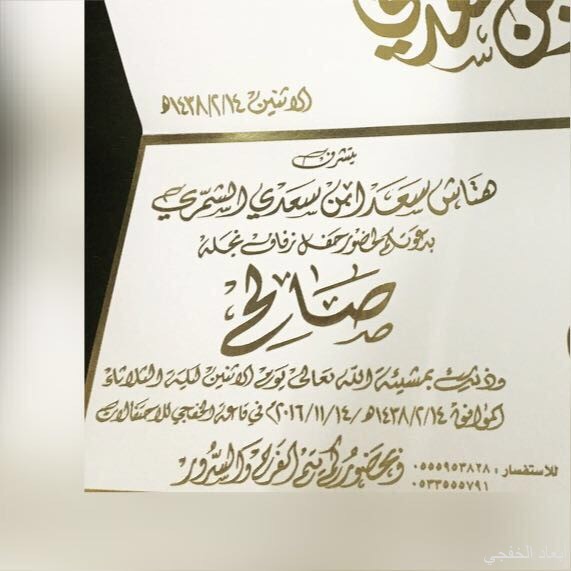 بن سعدي
الاثنين ١٤٣٨/٢/١٤هـ
يتشرف
هتاش سعد ابن سعدي الشمري
بدعوتكم لحضور حفل زفاف نجله
صالح
وذلك بمشيئة الله تعالى يوم الاثنين ليلة الثلاثاء
الموافق ١٤٣٨/٢/١٤هـ / ٢٠١٦/١١/١٤م في قاعة الخفجي للاحتفالات
وبحضوركم يتم الفرح والسرور
للاستفسار : ٠٥٥٥٩٥٣٨٢٨
٠٥٣٣٥٥٥٧٩١
أبعاد الخفجي